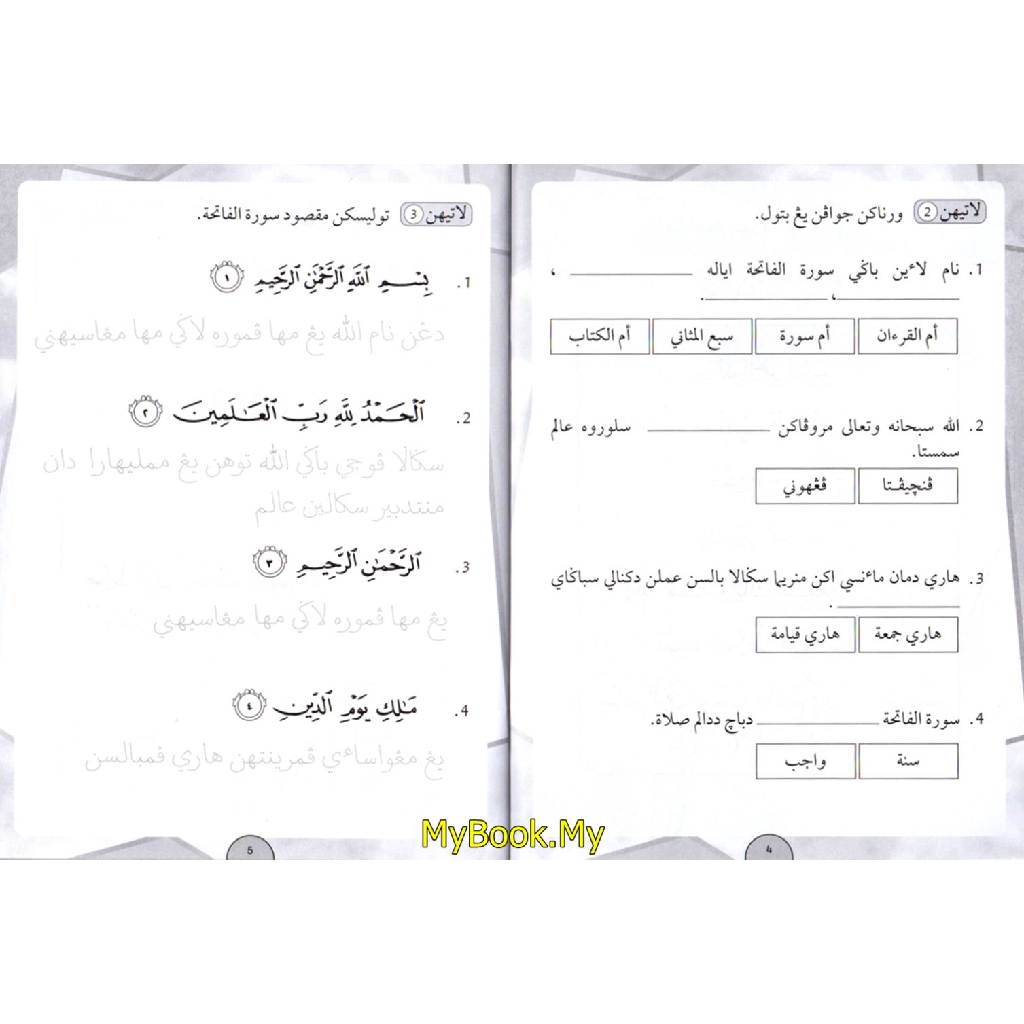 لاتيهن 2 ورناكن جواڤن يڠ بتول.
1. نام لاءين باݢي سورة الفاتحة اياله ____________ ،
____________، ____________.
أم القرءان
أم سورة
سبع المثاني
أم الكتاب
2. الله سبحانه وتعالى مروڤاكن ____________ سلوروه عالم
سمستا.
ڤنچيڤتا
ڤڠهوني
3. هاري دمان مأنسي اكن منريما سݢالا بالسن عملن دكنالي سباݢاي
____________.
هاري جمعة
هاري قيامة
4. سورة الفاتحة ____________ دباچ ددالم صلاة.
سنة
واجب
4
لاتيهن 3 توليسكن مقصود سورة الفاتحة.
1. بِسْمِ ٱللَّهِ ٱلرَّحْمَٰنِ ٱلرَّحِيمِ ١
دڠن نام الله يڠ مها ڤموره لاݢي مها مڠاسيهني
2. ٱلْحَمْدُ لِلَّهِ رَبِّ ٱلْعَٰلَمِينَ ٢
سݢالا ڤوجي باݢي الله توهن يڠ ممليهارا دان
منتدبير سكالين عالم
3. ٱلرَّحْمَٰنِ ٱلرَّحِيمِ ٣
يڠ مها ڤموره لاݢي مها مڠاسيهني
4. مَٰلِكِ يَوْمِ ٱلدِّينِ ٤
يڠ مڠواساءي ڤمرينتهن هاري ڤمبالسن
5
MyBook.My